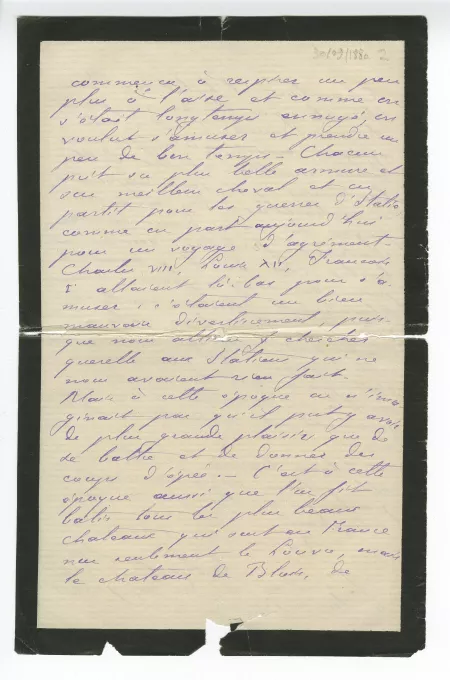 commença à respirer un peu
plus à l'aise et comme on
s'était longtemps ennuyé, on
voulut s'amuser et prendre un
peu de bon temps - Chacun
prit sa plus belle armure et
son meilleur cheval et on
partit pour les guerres d'Italie
comme on part aujourd'hui
pour un voyage d'agrément -
Charles VIII, Louis XII, Francois
I allaient là-bas pour s'a
muser; c'étaient un bien
mauvais divertissement puis-
que nous allions y chercher
querelle aux Italiens qui ne
nous avaient rien fait -
Mais à cette époque on n'ima
ginait pas qu'il put y avoir
de plus grands plaisirs que de
se battre et de donner des
coups d'épée. - C'est à cette
époque aussi que l'on fit
batir tous les plus beaux
chateaux qui sont en France
non seulement le Louvre, mais
le chateau de Blois, de